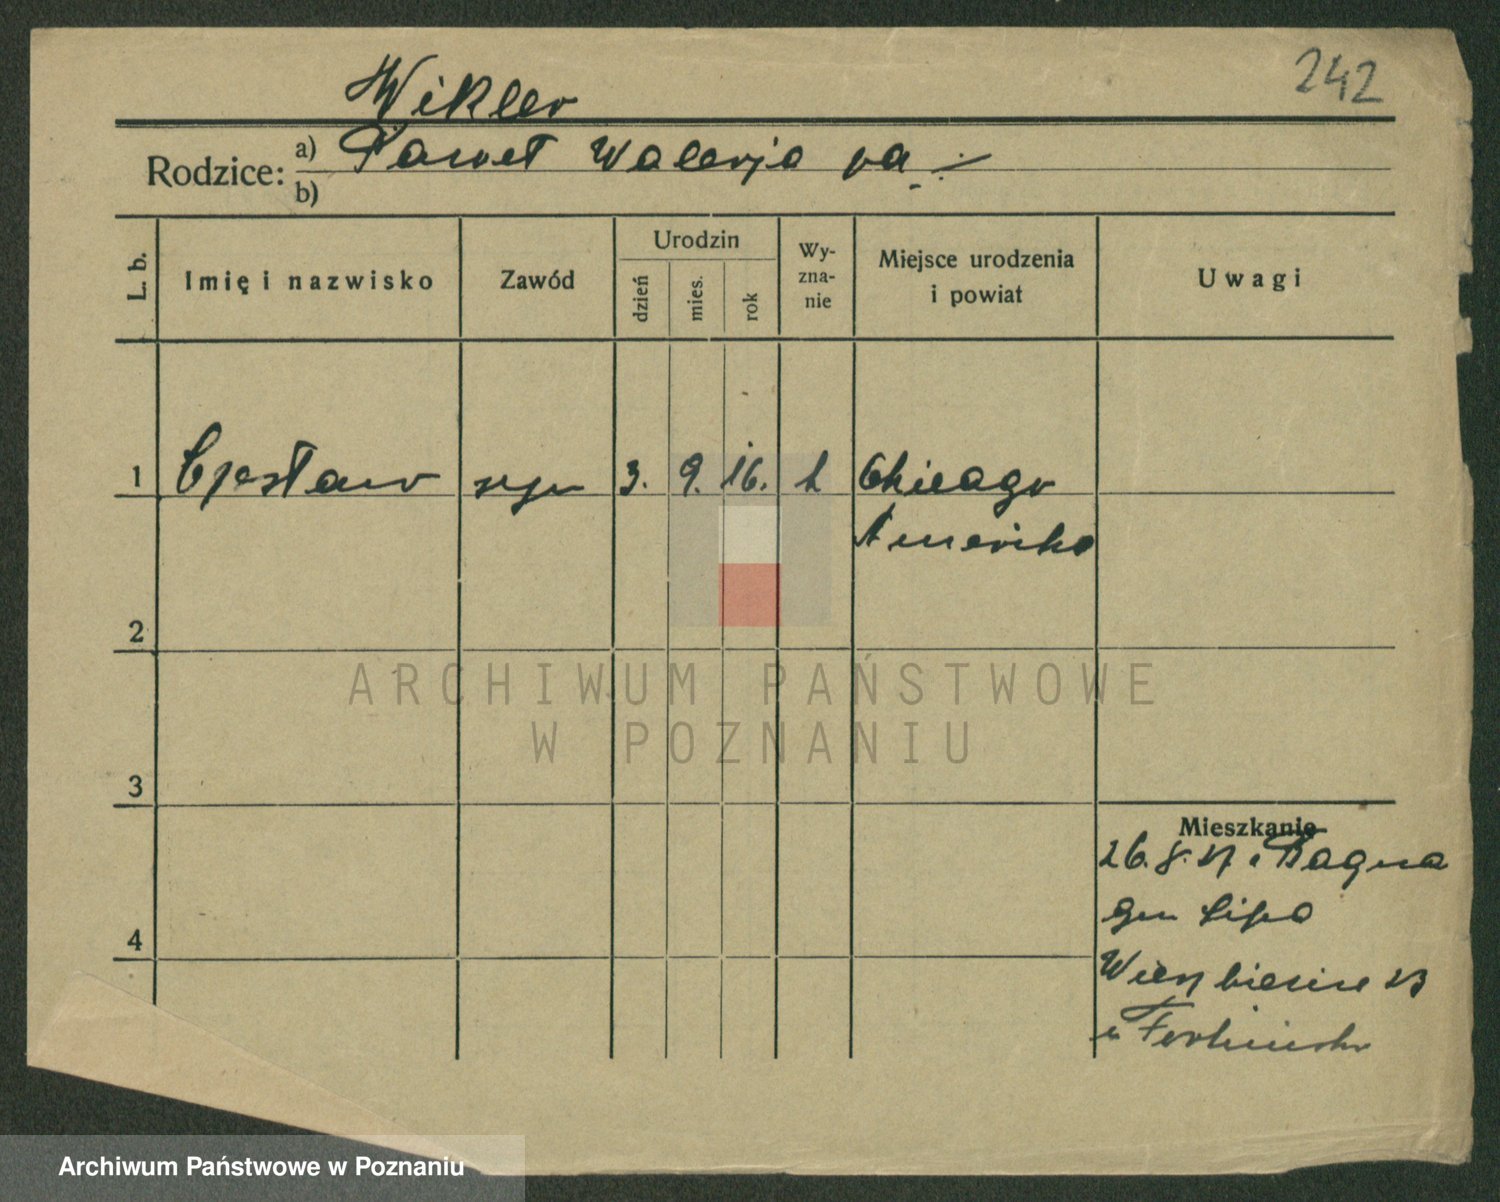 242
Wikler
Rodzice: a) Paweł Walerja
b)
L. b. Imię i nazwisko Zawód Urodzin dzień mies. rok Wy-zna-nie Miejsce urodzenia i powiat Uwagi
1 Czesław syn 3. 9. 16. k Chicago
Amerika
2
3
4
Mieszkanie
26. 8.
Lipa
Wierzbięcice 23
ARCHIWUM PAŃSTWOWE
W POZNANIU
Archiwum Państwowe w Poznaniu